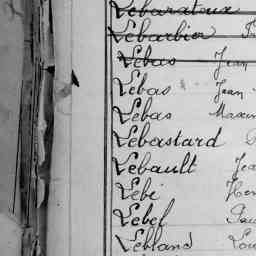 Lebaratoux
Lebarbier
Lebas Jean
Lebas Jean
Lebas Maxim
Lebastard
Lebault Jea
Lebé Hen
Lebef Pau
Lebland Lou